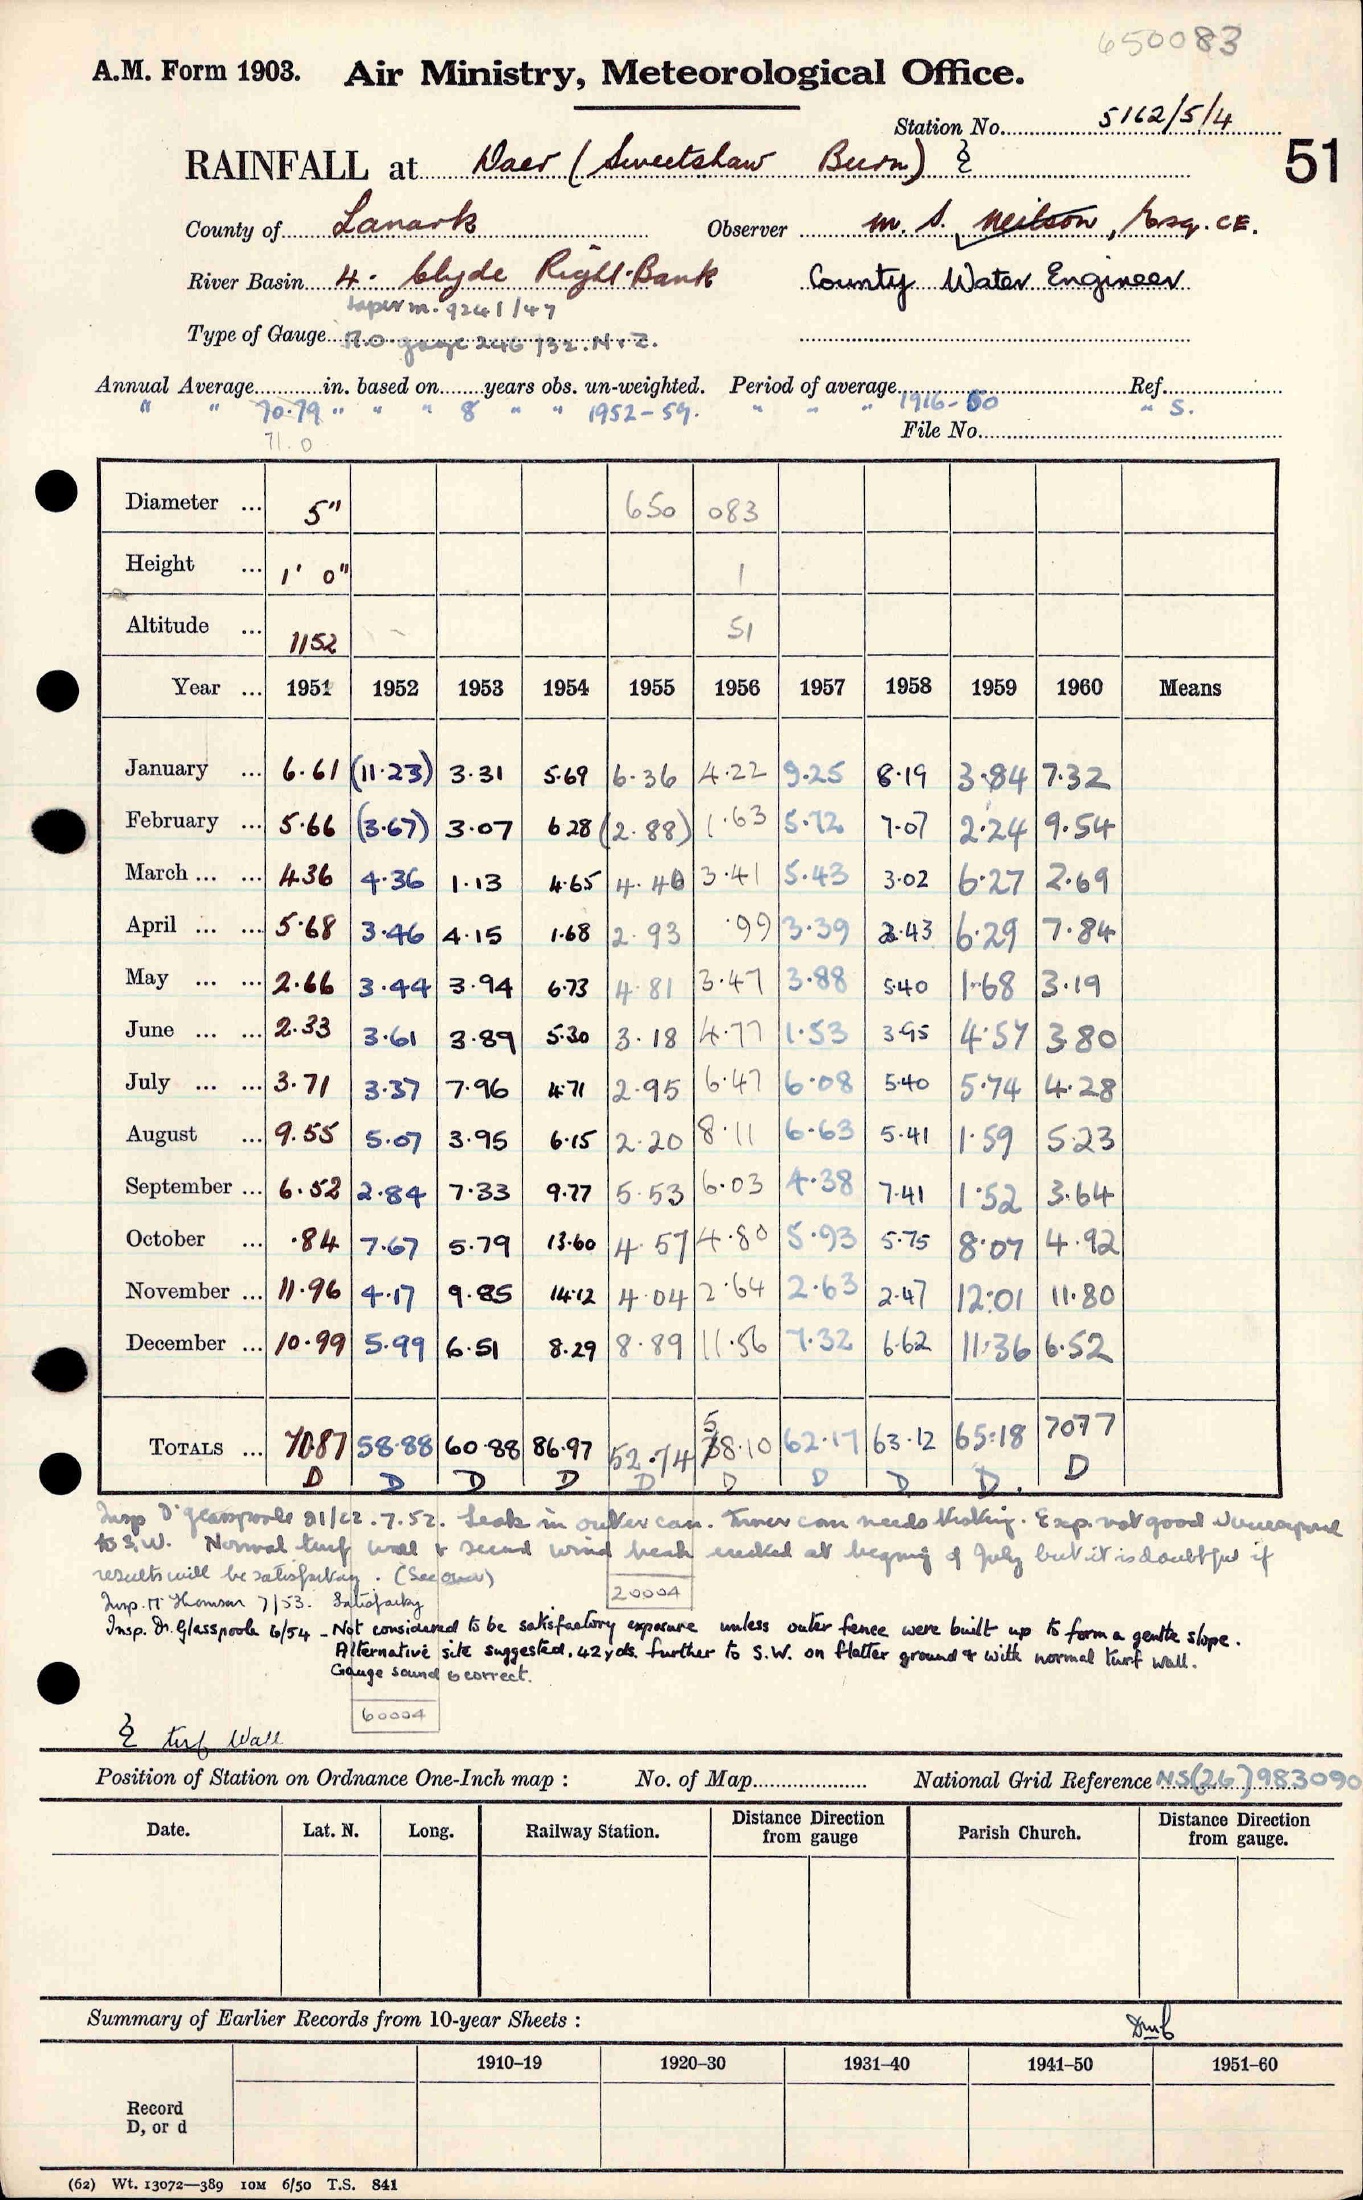 650083
A.M. Form 1903. Air Ministry, Meteorological Office.
Station No. 5162/5/4
RAINFALL at Daer (Sweetshaw Burn) ξ
51
County of Lanark Observer M. S. Neilson, Esq. C.E.
River Basin 4. Clyde Right-Bank County Water Engineer
9241/47
Type of Gauge M.O. gauge 246/32. N.Z.
Annual Average in. based on years obs. un-weighted. Period of average Ref.
" " 70.79 " " " 8 " " 1952-59. " " " 1916-50 " S.
71.0
File No.
Diameter ... 5" 650 083
Height ... 1' 0" 1
Altitude ... 1152 51
Year ... 1951 1952 1953 1954 1955 1956 1957 1958 1959 1960 Means
January ... 6.61 (11.23) 3.31 5.69 6.36 4.22 9.25 8.19 3.84 7.32
February ... 5.66 (3.67) 3.07 6.28 (2.88) 1.63 5.72 7.07 2.24 9.54
March ... ... 4.36 4.36 1.13 4.65 4.40 3.41 5.43 3.02 6.27 2.69
April ... ... 5.68 3.46 4.15 1.68 2.93 .99 3.39 2.43 6.29 7.84
May ... ... 2.66 3.44 3.94 6.73 4.81 3.47 3.88 5.40 1.68 3.19
June ... ... 2.33 3.61 3.89 5.30 3.18 4.77 1.53 3.95 4.57 3.80
July ... ... 3.71 3.37 7.96 4.71 2.95 6.47 6.08 5.40 5.74 4.28
August ... 9.55 5.07 3.95 6.15 2.20 8.11 6.63 5.41 1.59 5.23
September ... 6.52 2.84 7.33 9.77 5.53 6.03 4.38 7.41 1.52 3.64
October ... .84 7.67 5.79 13.60 4.57 4.80 5.93 5.75 8.07 4.92
November ... 11.96 4.17 9.85 14.12 4.04 2.64 2.63 2.47 12.01 11.80
December ... 10.99 5.99 6.51 8.29 8.89 11.56 7.32 6.62 11.36 6.52
5
TOTALS ... 70.87 58.88 60.88 86.97 52.74 78.10 62.17 63.12 65.18 70.77
D D D D D D D D D. D
Insp Dr Glasspoole 21/22.7.52. Leak in outer can. Inner can needs testing. Exp. not good
to S.W. Normal turf wall & second wind break erected at begng of July but it is doubtful if
results will be satisfactory. (See over)
20004
Insp. Mr Thomson 7/53. Satisfactory
Insp. Dr. Glasspoole 6/54 - Not considered to be satisfactory exposure unless outer fence were built up to form a gentle slope.
Alternative site suggested, 42 yds. further to S.W. on flatter ground & with normal turf wall.
Gauge sound & correct.
60004
ξ turf Wall
Position of Station on Ordnance One-Inch map : No. of Map National Grid Reference NS(26)983090
Date. Lat. N. Long. Railway Station. Distance Direction from gauge Parish Church. Distance Direction from gauge.
Summary of Earlier Records from 10-year Sheets :
1910–19 1920–30 1931–40 1941–50 1951–60
Record
D, or d
(62) Wt. 13072—389 10M 6/50 T.S. 841